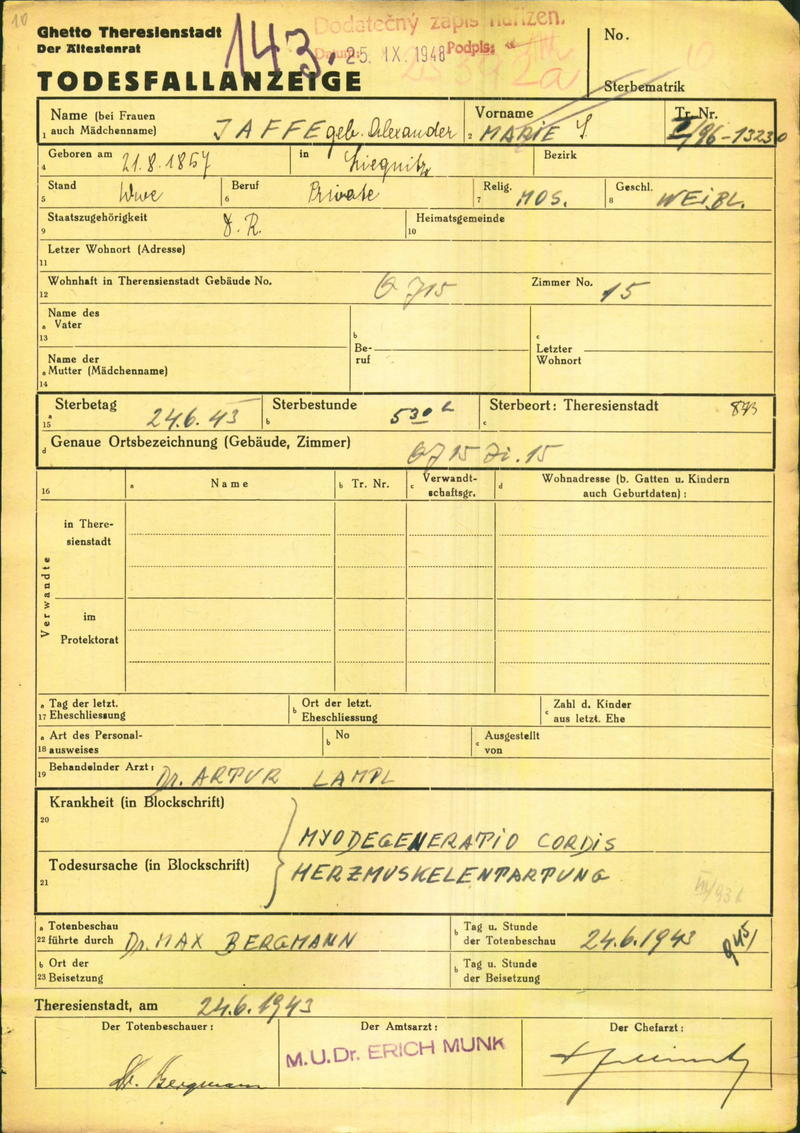 10
Ghetto Theresienstadt
Der Ältestenrat
TODESFALLANZEIGE
143.
Dodatečný zápis nařízen.
Datum: 25. IX. 1948 Podpis:
No.
Sterbematrik
Name (bei Frauen
1 auch Mädchenname) JAFFE geb. Alexander
Vorname
2 MARIE S
Tr. Nr.
I/96-13230
Geboren am 21.8.1867 in Liegnitz Bezirk
4
Stand Wwe Beruf Private Relig. MOS. Geschl. WEIBL.
5 6 7 8
Staatszugehörigkeit D.R. Heimatsgemeinde
9 10
Letzer Wohnort (Adresse)
11
Wohnhaft in Theresienstadt Gebäude No. Q 715 Zimmer No. 15
12
Name des
a Vater
13
b
Be-
ruf
c
Letzter
Wohnort
Name der
a Mutter (Mädchenname)
14
a Sterbetag 24.6.43 Sterbestunde 5 30 h Sterbeort: Theresienstadt
15 b c
d Genaue Ortsbezeichnung (Gebäude, Zimmer) Q 715 Zi. 15
16 a Name b Tr. Nr. c Verwandt-
schaftsgr. d Wohnadresse (b. Gatten u. Kindern
auch Geburtdaten) :
Verwandte
in There-
sienstadt
im
Protektorat
a Tag der letzt.
17 Eheschliessung
b Ort der letzt.
Eheschliessung
c Zahl d. Kinder
aus letzt. Ehe
a Art des Personal-
18 ausweises
No
b
c Ausgestellt
von
Behandelnder Arzt: Dr. ARTUR LAMPL
19
Krankheit (in Blockschrift)
20
MYODEGENERATIO CORDIS
Todesursache (in Blockschrift) HERZMUSKELENTARTUNG
21
a Totenbeschau
22 führte durch Dr. MAX BERGMANN
b Tag u. Stunde
der Totenbeschau 24.6.1943
b Ort der
23 Beisetzung
b Tag u. Stunde
der Beisetzung
Theresienstadt, am 24.6.1943
Der Totenbeschauer : Der Amtsarzt : Der Chefarzt :
Dr. Bergmann
M.U.Dr. ERICH MUNK